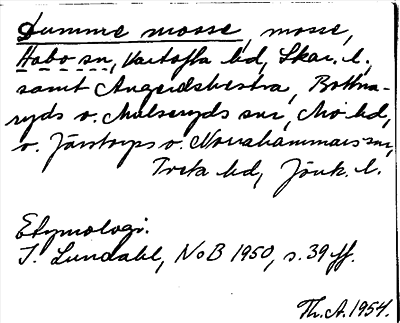 Dumme mosse, mosse,
Habo sn, Vartofta hd, Skar. l.,
samt Angerdshestra, Bottna-
ryds o. Malseryds snr, Mo hd,
o. Järstorps o. Norrahammars snr,
Tveta hd, Jönk. l.
Etymologi.
I. Lundahl, NoB 1950, s. 39 ff.
Th. A. 1954.